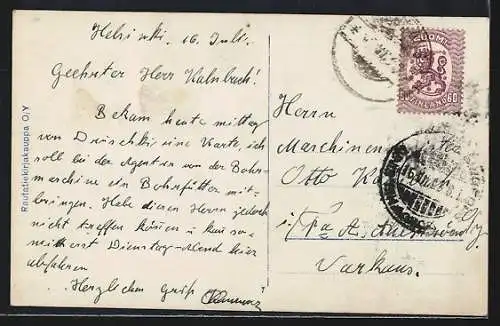 Helsinki. 16. Juli.
Geehrter Herr Kalnbach!
Bekam heute mittag
von eine Karte, ich
soll bei der Agentur von der Bohr-
maschine ein Bohrfutter mit-
bringen. Habe diesen Herrn jedoch
nicht treffen können u. kann so-
mit erst Dienstag-Abend hier
abfahren
Herzlichen Gruß
Rautatiekirjakauppa O/Y
SUOMI
FINLAND 60
Herrn
Maschinenmei
Otto Ka
i/ Fa A. Ahlström O/y
Varkaus.